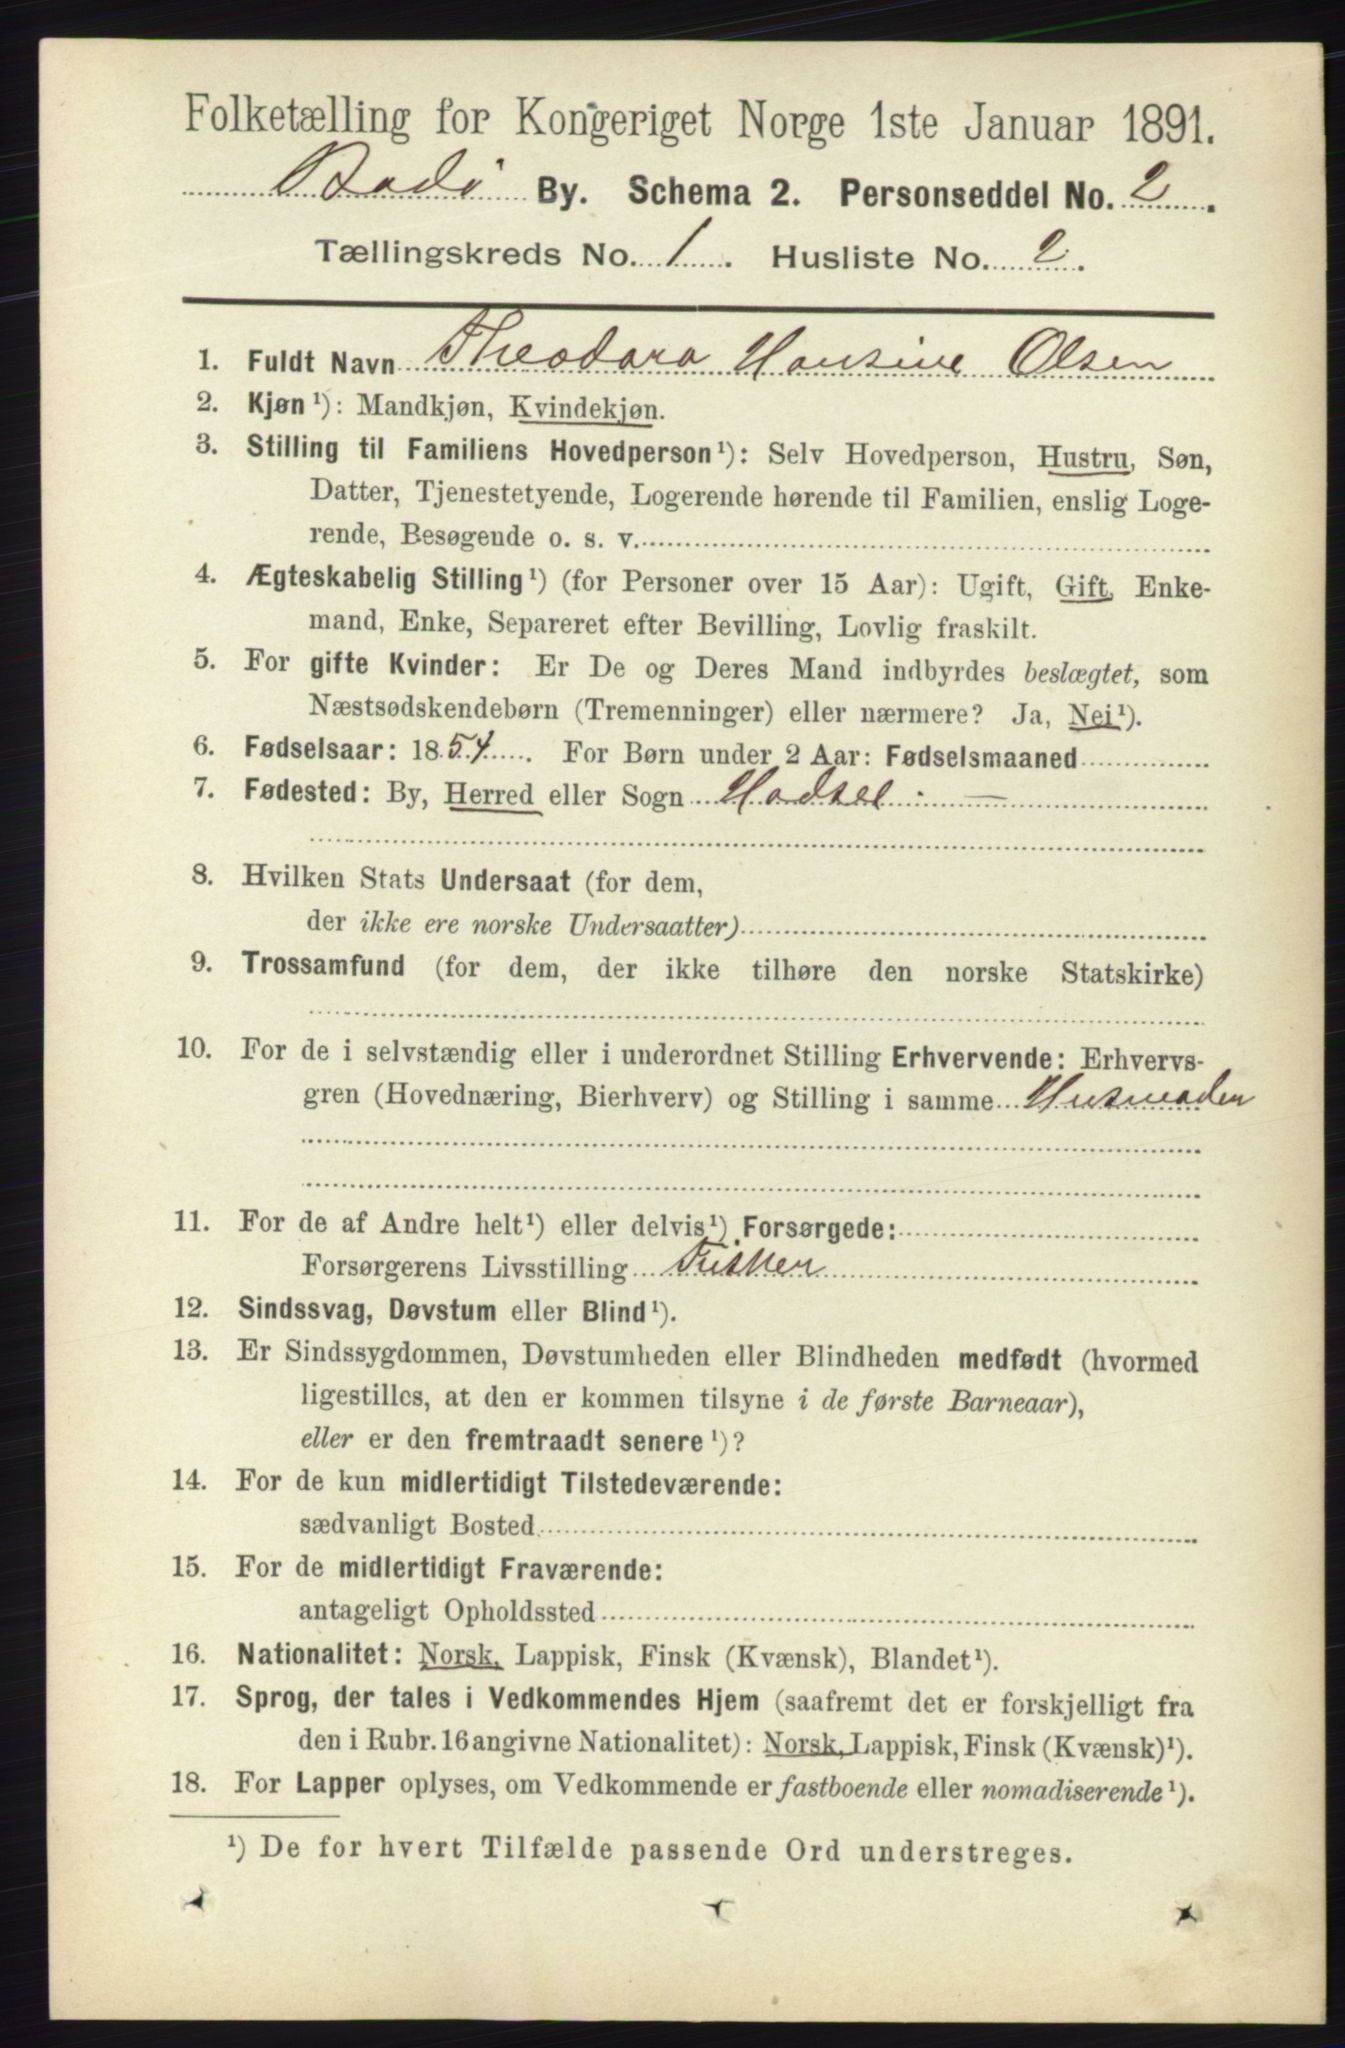 Folketælling for Kongeriget Norge 1ste Januar 1891.
Bodø By. Schema 2. Personseddel No. 2.
Tællingskreds No. 1. Husliste No. 2.
1. Fuldt Navn Theodora Hansine Olsen
2. Kjøn ¹): Mandkjøn, Kvindekjøn.
3. Stilling til Familiens Hovedperson ¹): Selv Hovedperson, Hustru, Søn,
Datter, Tjenestetyende, Logerende hørende til Familien, enslig Loge-
rende, Besøgende o. s. v.
4. Ægteskabelig Stilling ¹) (for Personer over 15 Aar): Ugift, Gift, Enke-
mand, Enke, Separeret efter Bevilling, Lovlig fraskilt.
5. For gifte Kvinder: Er De og Deres Mand indbyrdes beslægtet, som
Næstsødskendebørn (Tremenninger) eller nærmere? Ja, Nei ¹).
6. Fødselsaar: 1854. For Børn under 2 Aar: Fødselsmaaned
7. Fødested: By, Herred eller Sogn Hadsel. —
8. Hvilken Stats Undersaat (for dem,
der ikke ere norske Undersaatter)
9. Trossamfund (for dem, der ikke tilhøre den norske Statskirke)
10. For de i selvstændig eller i underordnet Stilling Erhvervende: Erhvervs-
gren (Hovednæring, Bierhverv) og Stilling i samme Husmoder
11. For de af Andre helt ¹) eller delvis ¹) Forsørgede:
Forsørgerens Livsstilling Fisker
12. Sindssvag, Døvstum eller Blind ¹).
13. Er Sindssygdommen, Døvstumheden eller Blindheden medfødt (hvormed
ligestilles, at den er kommen tilsyne i de første Barneaar),
eller er den fremtraadt senere ¹)?
14. For de kun midlertidigt Tilstedeværende:
sædvanligt Bosted
15. For de midlertidigt Fraværende:
antageligt Opholdssted
16. Nationalitet: Norsk, Lappisk, Finsk (Kvænsk), Blandet ¹).
17. Sprog, der tales i Vedkommendes Hjem (saafremt det er forskjelligt fra
den i Rubr. 16 angivne Nationalitet): Norsk, Lappisk, Finsk (Kvænsk) ¹).
18. For Lapper oplyses, om Vedkommende er fastboende eller nomadiserende ¹).
¹) De for hvert Tilfælde passende Ord understreges.